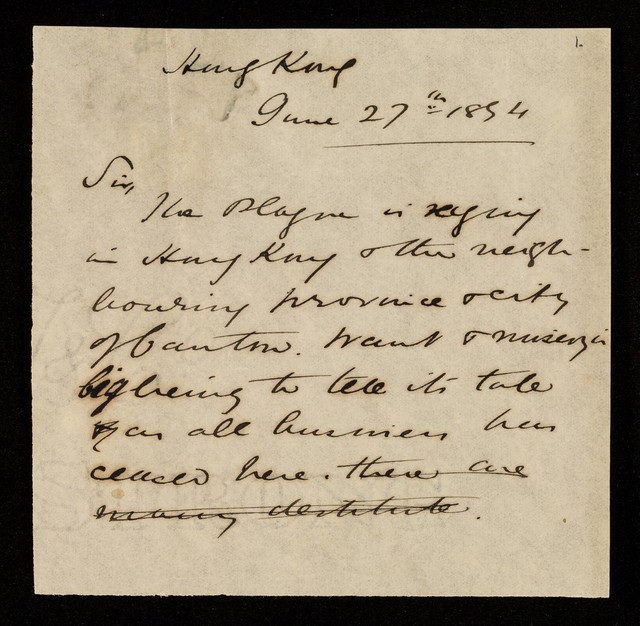 1.
Hong Kong
June 27th 1894
Sir,
The Plague is raging
in Hong Kong & the neigh-
bouring province & city
of Canton. Want & misery is
beginning to tell its tale
& as all business has
ceased here. there are
many destitute.